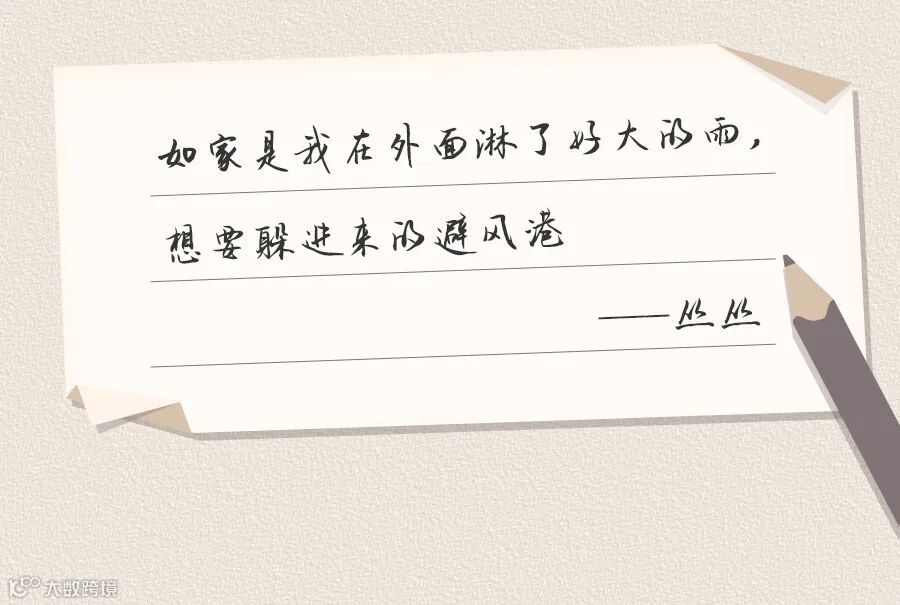 如家是我在外面淋了好大的雨，
想要躲进来的避风港
——丛丛
大数跨境